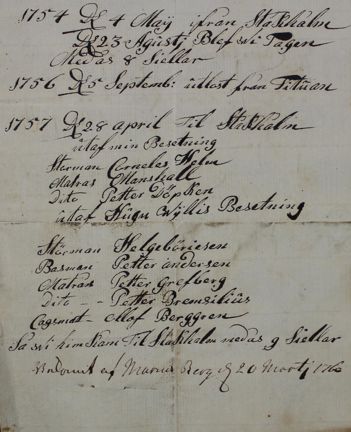 1754 D 4 Maij ifrån Stokhålm
D 23 Agustj Blef wi Tagen
Medas 8 Siellar
1756 D 5 Septemb: utlost från Tituan
1757 D 28 april Til Stokholm
utaf min Besetning
Sterman Corneles Helm
Matras Manshall
Dito Petter Döpken
uttaf Hügu Wyllis Besetning
Störman Helgeböriesen
Basman Petter andersen
Matras Petter Grefberg
Dito - - Petter Bremsiliüs
Cagsmat - ollof Berggren
Sa wi kam Til Stokholm medas 9 Siellar
af Marcus Berg d 20 Martj 1760